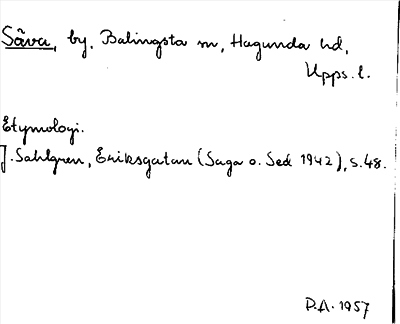 Säva, by. Balingsta sn, Hagunda hd,
Upps. l.
Etymologi.
J. Sahlgren, Eriksgatan (Saga o. Sed 1942), s. 48.
P.A. 1957